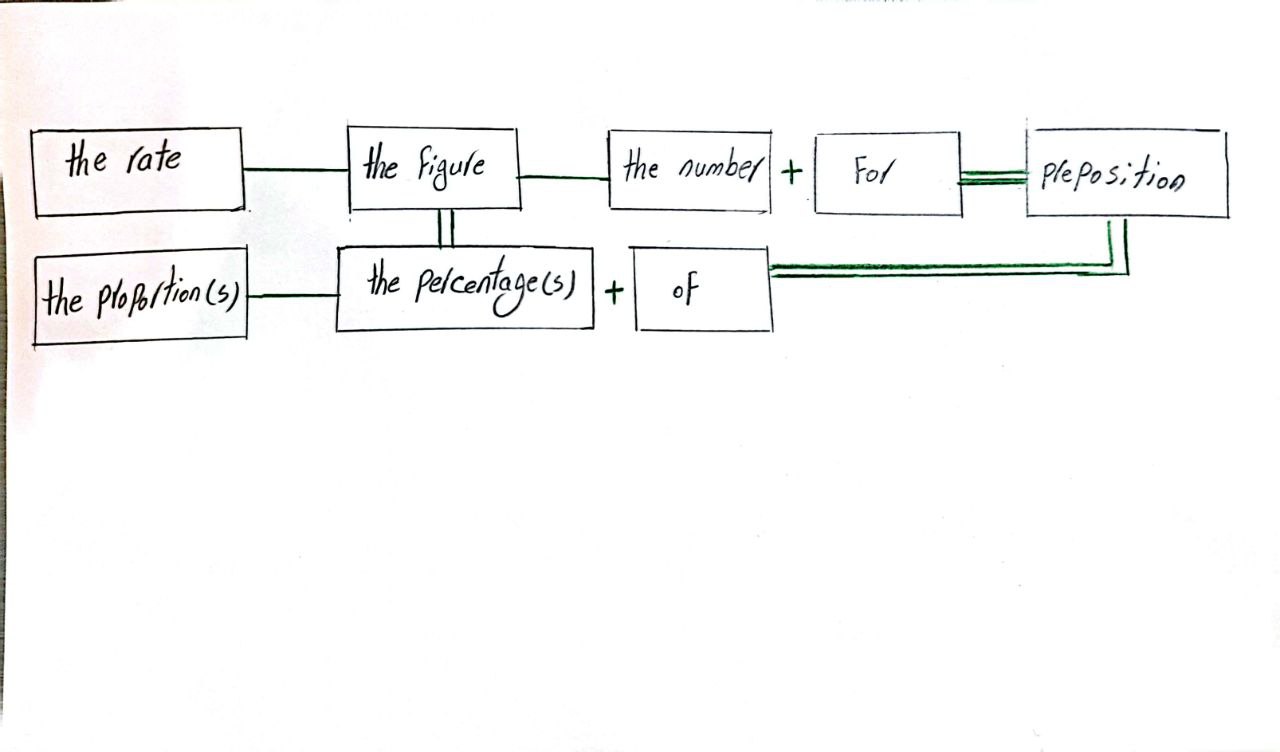 the rate the figure the number + For preposition
the proportion(s) the percentage(s) + of